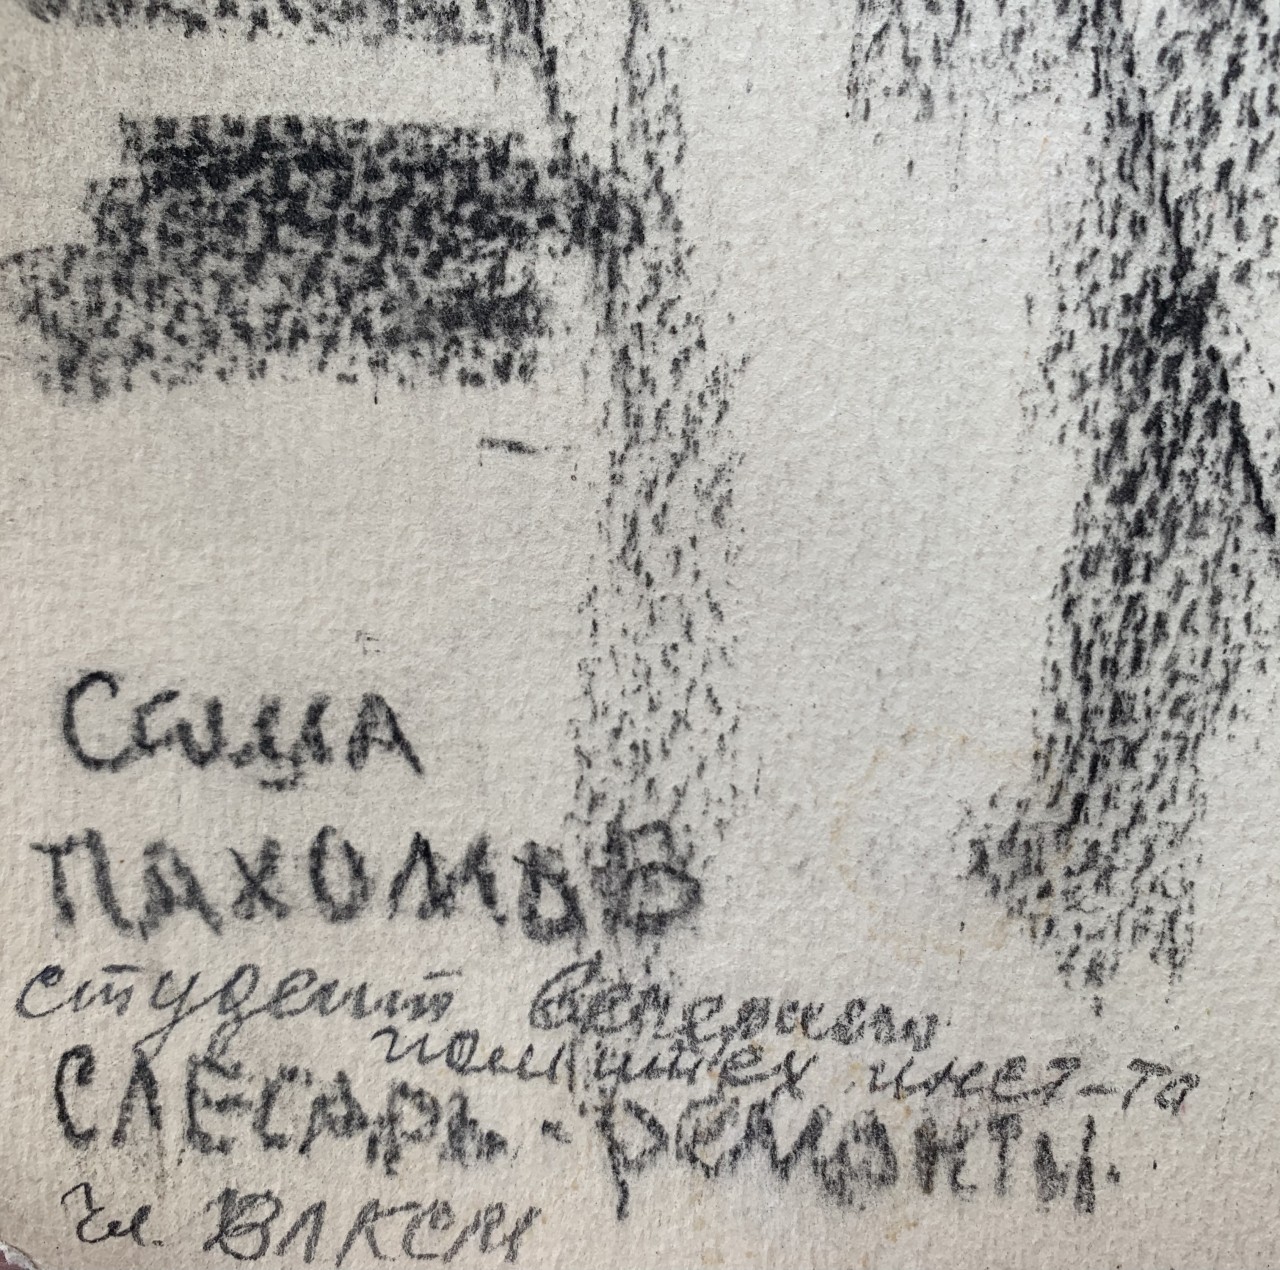 Саша
ПАХОМОВ
студент Вечернего
политех. инст-та
СЛЕСАРЬ-РЕМОНТН.
Чл. ВЛКСМ